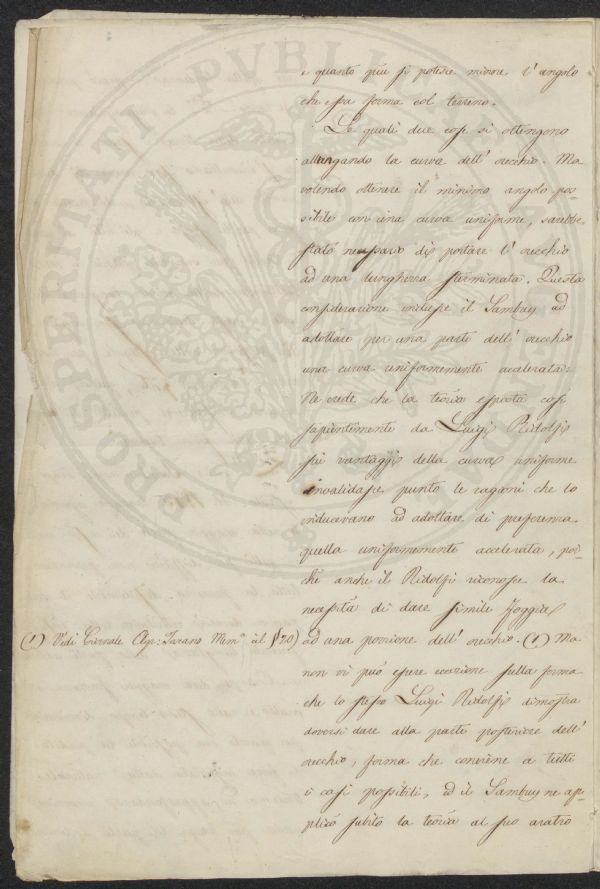 e quanto più si potesse minore l'angolo
che essa forma col terreno.
Le quali due cose si ottengono
allungando la curva dell'orecchio. Ma
volendo ottenere il minimo angolo pos-
sibile con una curva uniforme, sarebbe
stato necessario di portare l'orecchio
ad una lunghezza sterminata. Questa
considerazione indusse il Sambuy ad
adottare per una parte dell'orecchio
una curva uniformemente accelerata.
Ne crede che la teoria esposta così
sapientemente da Luigi Ridolfi
sui vantaggi della curva uniforme
invalidasse punto le ragioni che lo
inducevano ad adottare di preferenza
quella uniformemente accelerata, poi-
chè anche il Ridolfi riconosce la
necessità di dare simile foggia
ad una porzione dell'orecchio. (1) Ma
(1) Vedi Giornale Agr: Toscano Mem.ª al § 20)
non vi può essere eccezione sulla forma
che lo stesso Luigi Ridolfi dimostra
doversi dare alla parte posteriore dell'
orecchio, forma che conviene a tutti
i casi possibili, ed il Sambuy ne ap-
plicò subito la teoria al suo aratro
PROSPERITATI PVBLICAE